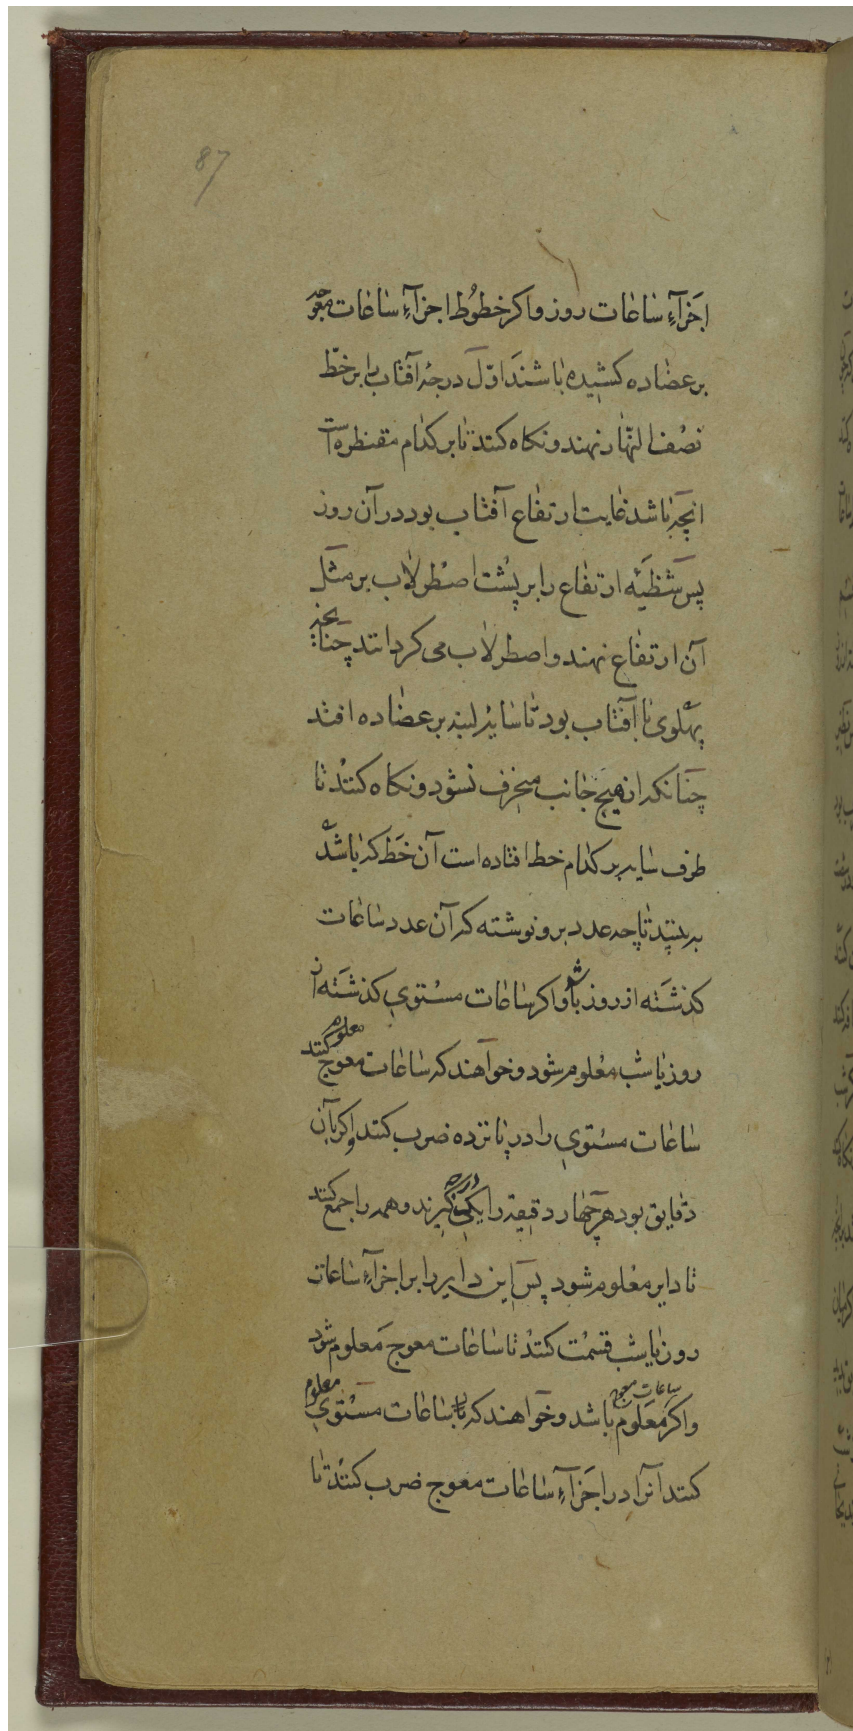 87
اجزآءِ ساعات روز و اکر خطوُط اجزآءِ ساعات معوّجه
بر عضاده کشیده باشند اوّل درجهٔ آفتاب را بر خطّ
نصْف النّهار نهند و نکاه کنند تا بر کدام مقنطره است
انچه باشد غایت ارتفاع آفتاب بود در آن روز
پس شظیّهٔ ارتفاع را بر پشت اصطرلاب بر مثل
آن ارتفاع نهند و اصطرلاب می کردانند چنانچه
پهلوی با آفتاب بود تا سایهٔ لبنه بر عضاده افتد
چنانکه از هیچ جانب منحرف نشود و نکاه کنند تا
طرف سایه بر کدام خط افتاده است آن خط که باشد
به بینند تا چه عدد برو نوشته که آن عدد ساعات
کذشته از روز باشد و اکر ساعات مستوی کذشته از
روز یا شب معْلوم شود و خواهند که ساعات معوج معلوم کنند
ساعات مستوی را در پانزده ضرب کنند و اکر با آن
دقایق بود هر چهار دقیقه را یکی درجه گیرند و همه را جمع کنند
تا دایر معْلوم شود پس این دایر را بر اجزآءِ ساعات
روز یا شب قسمْت کنند تا ساعات معوج مَعلوم شود
و اکر ساعات معوج معلوم باشد و خواهند که ساعات مستوی معلوم
کنند آنرا در اجزآءِ ساعات معوج ضرب کنند تا